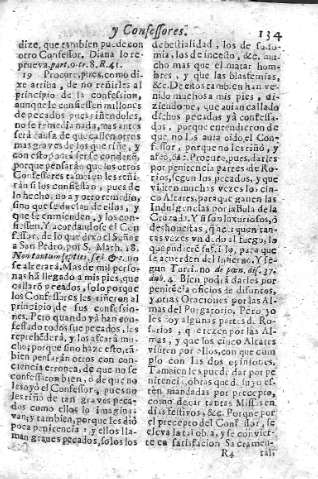 y Confessores.
134
dize, que tambien puede con
otro Confessor. Diana lo re-
prueva. part. 9. tr. 8. R. 41.
19 Procure, pues, como di-
xe arriba, de no reñirles al
principio de la confession,
aunque le confiessen millones
de pecados pues riñendoles,
no se remedia nada, mas antes
será causa de que callen otros
mas graves de los que riñe, y
con esto por será se condene,
porque pensarán que los otros
Confessores tambien les reñi-
rán si los confiessan, pues de
lo hecho, no ay otro remedio,
sino que se duelan de ellos, y
que se enmienden, y los con-
fiessen. Y acordandose el Con-
fessor, de lo que dixo el Señor
a San Pedro, por S. Math. 18.
Non tantum septies, sed &c. no
se alterará. Mas de mil perso-
nas ha llegado a mis pies, que
callaró pecados, solo porque
los Confessores les riñeron al
principio de sus confessio-
nes. Pero quando yá han con-
fessado todos sus pecados, les
reprehenderá, y los afeará mu-
cho; porque sino haze esto, tã-
bien pensarán otros con con-
ciencia erronea, de que no se
confessaron bien, ó de que no
les oyó el Confessor, pues no
les riñó de tan graves peca-
dos como ellos lo imagina-
van, y tambien, porque les dió
poca penitencia: y ellos lla-
man graves pecados, solos los
de bestialidad, los de sodo-
mia, los de incesto, &c. mu-
cho mas que el matar hom-
bres, y que las blasfemias,
&c. De estos tambien han ve-
nido muchos á mis pies, di-
ziendome, que avian callado
dichos pecados yá confessa-
dos, porque entendieron de
que no los avia oido el Con-
fessor, porque no les riñó, y
afeó, &c. Procure, pues, darles
por penitencia partes de Ro-
sarios, segun los pecados, y que
visiten muchas vezes los cin-
co Altares, para que ganen las
Indulgencias por la Bula de la
Cruzada. Y si son luxuriosos, ó
deshonestos, que quemen tan-
tas vezes un dedo al fuego, lo
que puede sufrirlo, para que
se acuerden del Infierno. Y se-
gun Turri. no de pœn. disp. 37.
dub. 4. Bien podrá darles por
penitencia oficios de difuntos,
y otras Oraciones por las Al-
mas del Purgatorio. Pero yo
les doy algunas partes de Ro-
sarios que rezen por las Al-
mas, y que los cinco Altares
visiten por ellos, con que cum-
plo con las dos opiniones.
Tambien les puede dar por pe-
nitencia, obras que de suyo es-
tén mandadas por precepto,
como dezir tantas Missas en
dias festivos, &c. Porque por
el precepto del Confessor, se
eleva la tal obra, y se convier-
te en satisfacion Sacramen-
R 4
tali